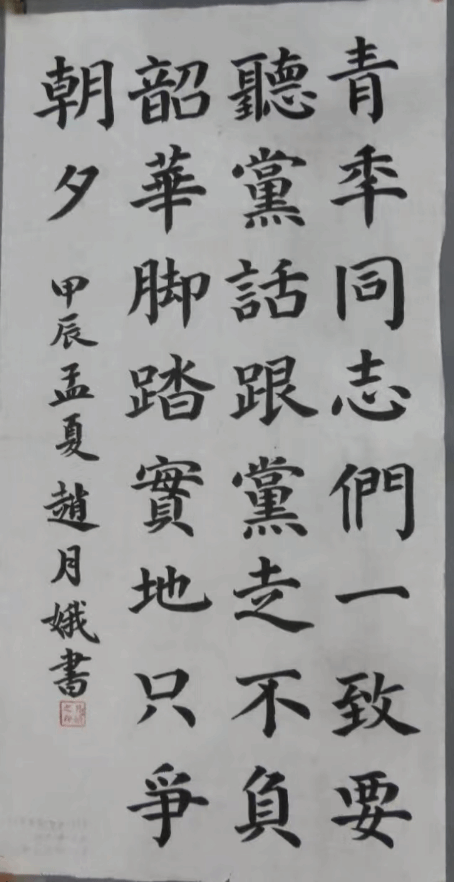 青年同志們一致要
聽黨話跟黨走不負
韶華脚踏實地只爭
朝夕
甲辰孟夏趙月娥書